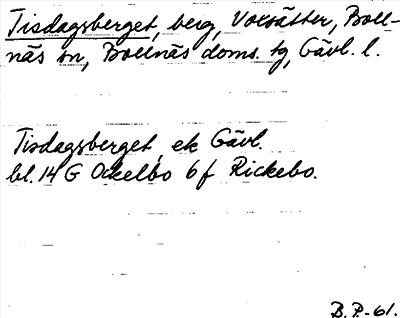 Tisdagsberget, berg, Voxsätter, Boll-
näs sn, Bollnäs doms. tg, Gävl. l.
Tisdagsberget, ek Gävl.
bl. 14 G Ockelbo 6 f Rickebo.
B. P. -61.